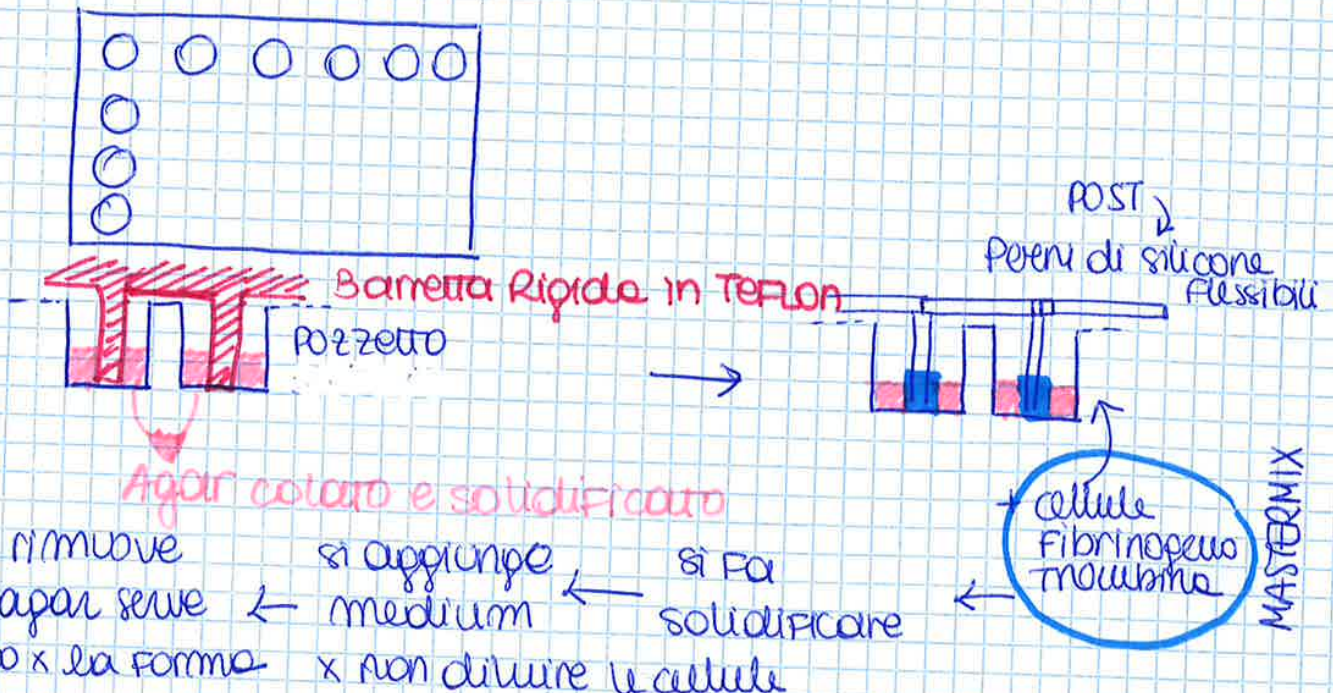 POST
Perni di silicone
flessibili
Barretta Rigida in TEFLON
pozzetto
Agar colato e solidificato
MASTERMIX
+ cellule
fibrinogeno
trombina
si fa
solidificare
si aggiunge
medium
x non diluire le cellule
rimuove
agar serve
o x la forma